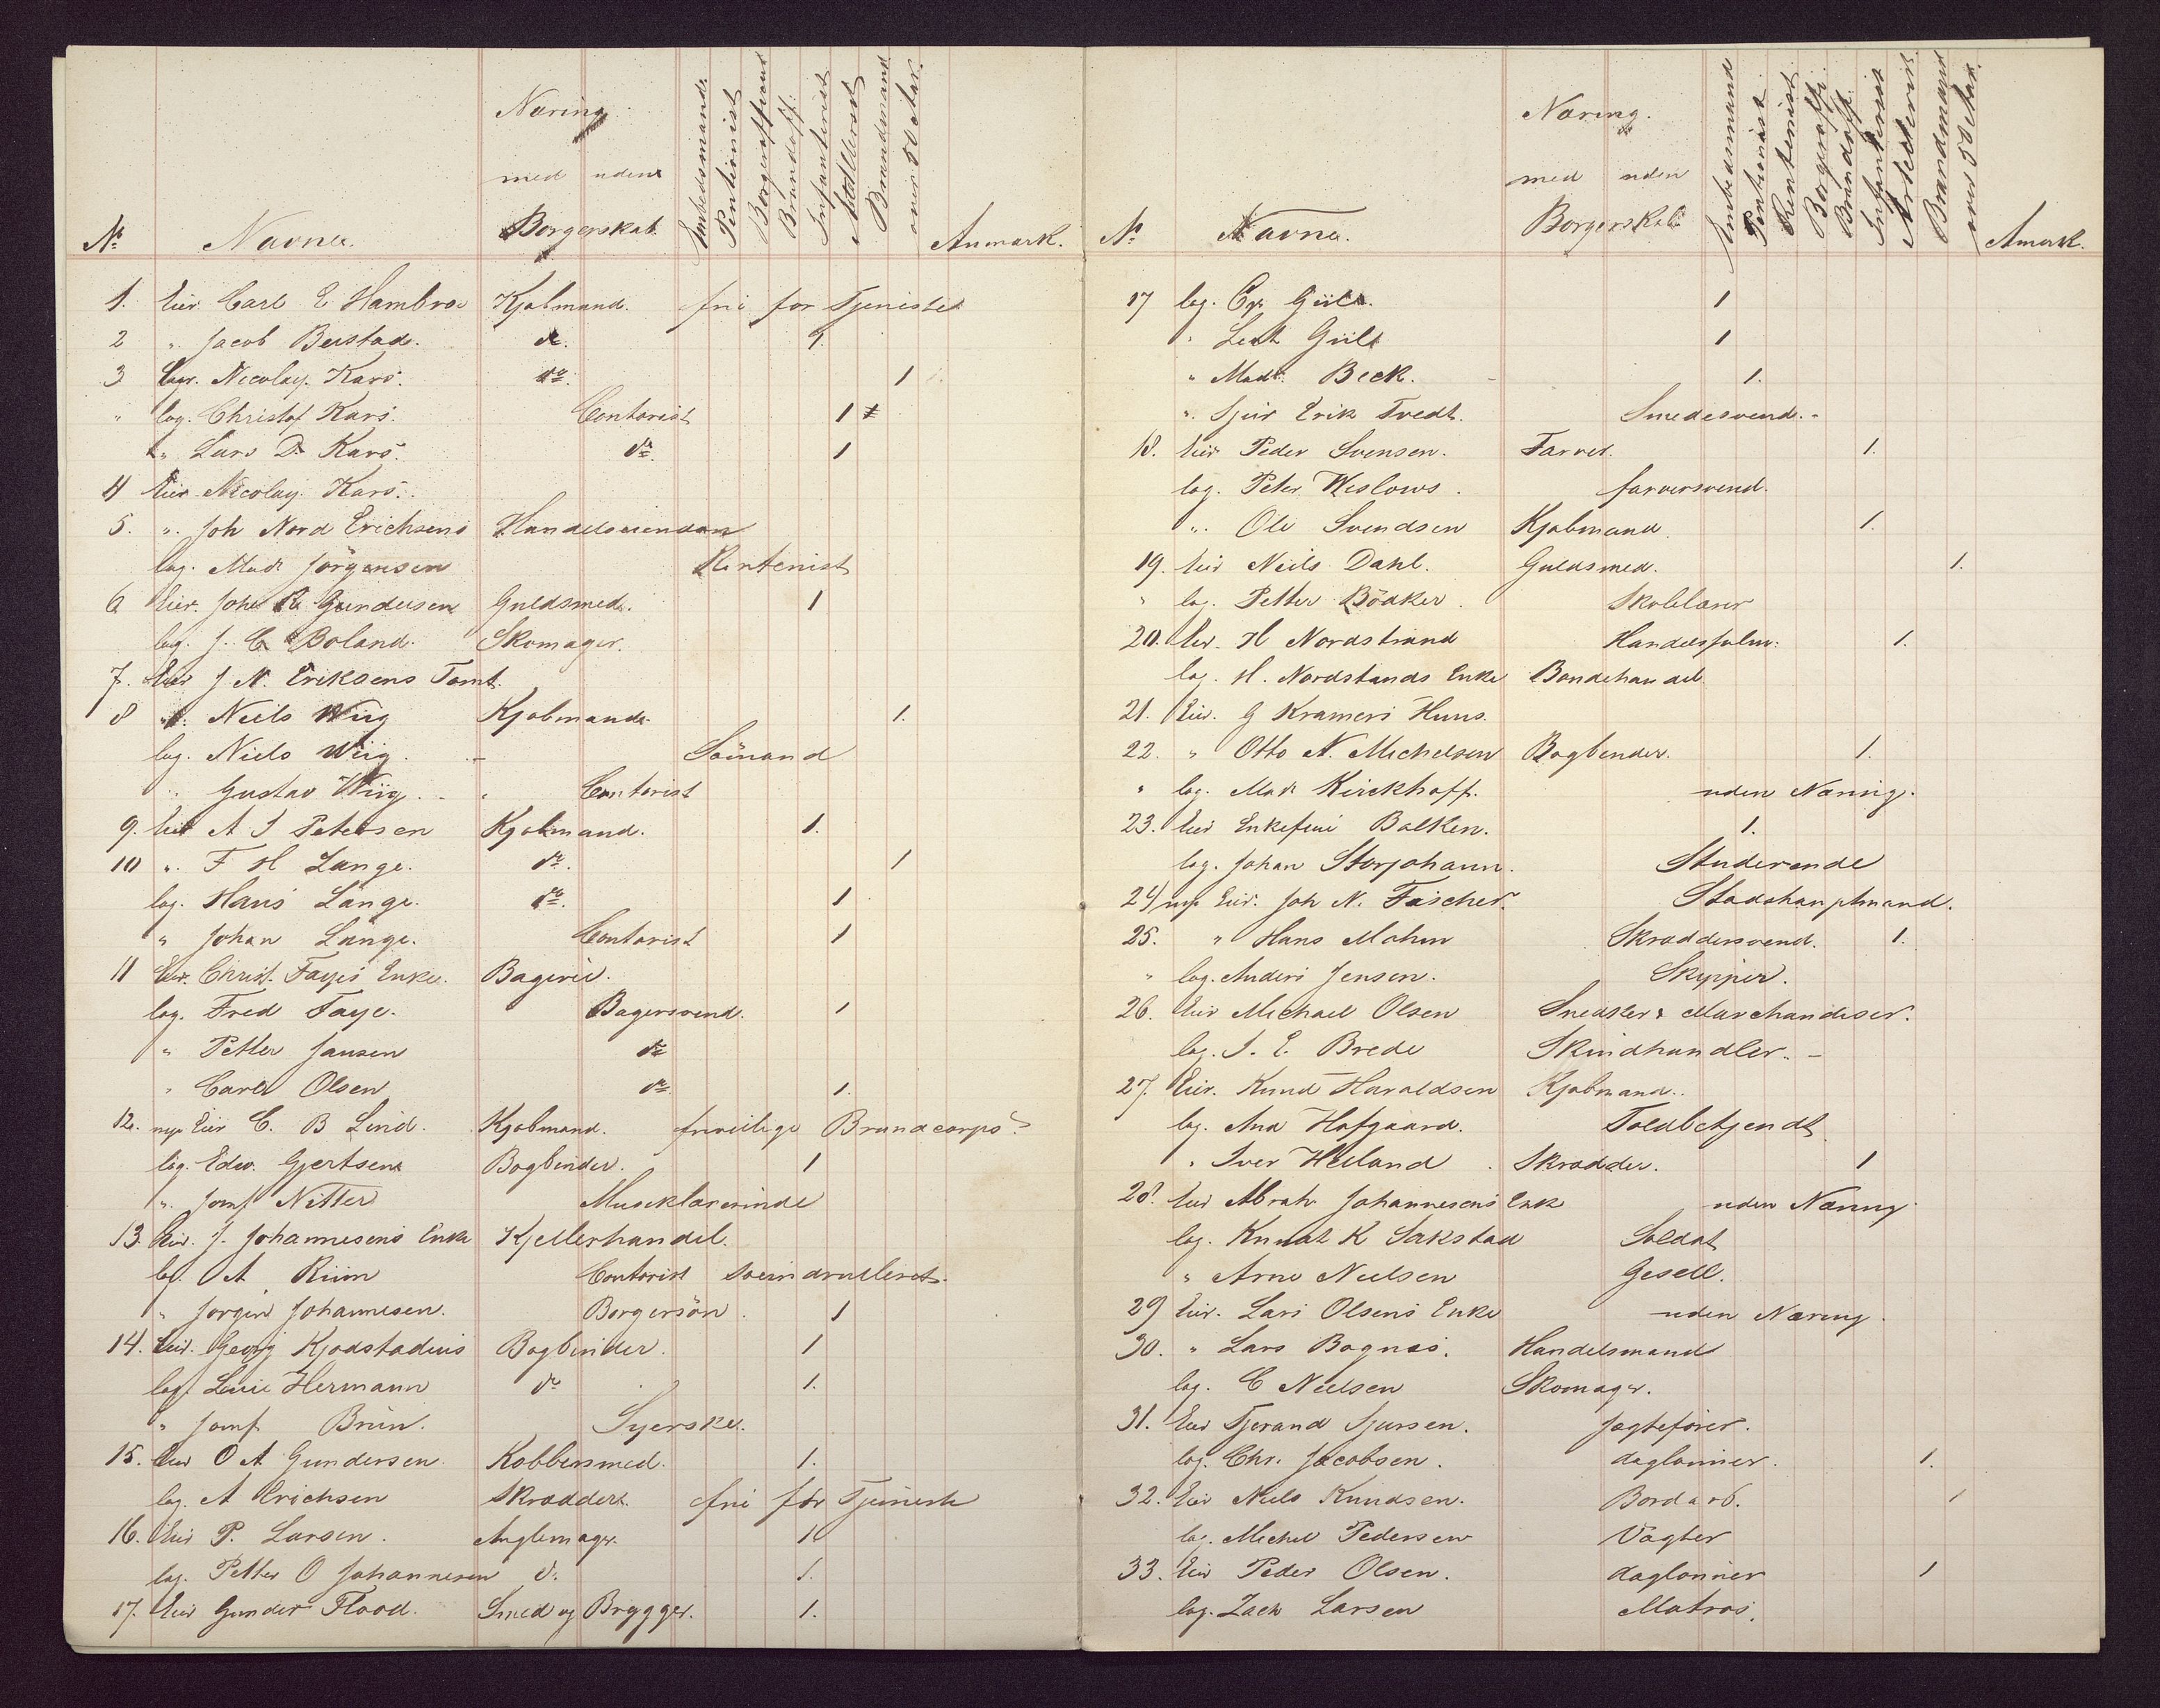 Næring
med uden
Borgerskab.
Embedsmand
Pentionist
Borgeroffisent
Brandoff.
Infanterist
Artillerist
Brandmand
over 50 Aar.
No Navne. Anmærk.
1. Eier Carl E Hambro Kjøbmand. fri for Tjeneste
2 " Jacob Beistad. do. 1.
3 Logr. Nicolay Kars. do. 1
" log. Christof Kars. Contorist 1
" Lars D. Kars. do. 1
4 Eier Nicolay Kars.
5. " Joh Nord Erichsens Handelseiendom
log. Mad Jörgensen Rentenist
6 Eier. Joh R Gundersen Guldsmed. 1
log. J. C Boland. Skomager.
7. Eier J N. Eriksens Tomt.
8 " Niels Wiig Kjøbmand. 1.
log. Niels Wiig. - Sömand
" Gustav Wiig. - Contorist
9. Eier A J Petersen Kjøbmand. 1.
10 " F H Lange. do. 1
log. Hans Lange. do. 1
" Johan Lange. Contorist 1
11 Eier. Christ. Fayes Enke. Bageri.
log. Fred Faye. Bagersvend. 1
" Petter Jansen do
" Carl Olsen do 1.
12. nye Eier C. B Lind. Kjøbmand. frivilige Brandcorps
log. Edv. Gjertsen Bogbinder. 1
" Jomf Nitter Musiklærerinde
13. Eier. J. Johannesens Enke Kjellerhandel.
log. A Riim Contorist
" Jørgen Johannesen. Borgersön. 1
14. Eier. Georg Kjodstadius Bogbinder. 1
log. Hermann do 1.
" Jomf Brun. Syerske.
15. Eier O A Gundersen. Kobbersmed. 1.
log. A Erichsen Skrædder. fri for Tjeneste
16. Eier P. Larsen. Anglemager. 1.
log. Petter O Johannesen do. 1.
17. Eier Gunder Flood. Smed og Brygger. 1.
Næring.
med uden
Borgerskab
Embedsmand
Pentionist
Rentenist
Borgeroffi.
Brandoff.
Infanterist
Artillerist
Brandmand
over 50 Aar.
No Navne. Anmærk.
17 log. Güll. 1
" Güll 1
" Mad. Beck. - 1.
" Sjur Erik Tvedt. Smedesvend. -
18. Eier Peder Svensen. Farver. 1.
log. Peter Weslows. farversvend.
" Ole Svendsen Kjøbmand. 1.
19. Eier Niels Dahl. Guldsmed. 1.
" log. Petter Bödker. Skolelærer
20. Eier H Nordstrand Handelsfulm. 1.
log. H. Nordstands Enke Bondehandel
21. Eier. G Kramers Huus.
22. " Otto N. Michelsen Bogbinder. 1.
" log. Mad Kirckhoff. uden Næring.
23. Eier Enkefrue Balken. 1.
log. Johan Storjohann. Studerende
24 nye Eier. Joh N. Fischer. Stadshauptmand.
25. " Hans Mohn Skræddersvend. 1.
" log. Anders Jensen. Skipper.
26. Eier Michael Olsen Snedker & Marchandiser.
log. J. E. Brede Skindhandler. -
27. Eier. Knud Haraldsen Kjøbmand.
log. And Hofgaard. Toldbetjendt
" Iver Heiland. Skrædder. 1
28. Eier Abrah Johannesens Enk uden Næring
log. Knudt K Sakstad Soldat
" Arne Nielsen Gesell.
29 Eier. Lars Olsens Enke uden Næring.
30. " Lars Bognæs. Handelsmand
log. C Nielsen Skomager.
31. Eier Tjerand Sjursen. Jagtefører.
log. Chr. Jacobsen. daglønner. 1.
32. Eier Niels Knudsen. Bordarb. 1
log. Michel Pedersen Vagter
33. Eier Peder Olsen. daglønner 1
log. Zach Larsen Matros.